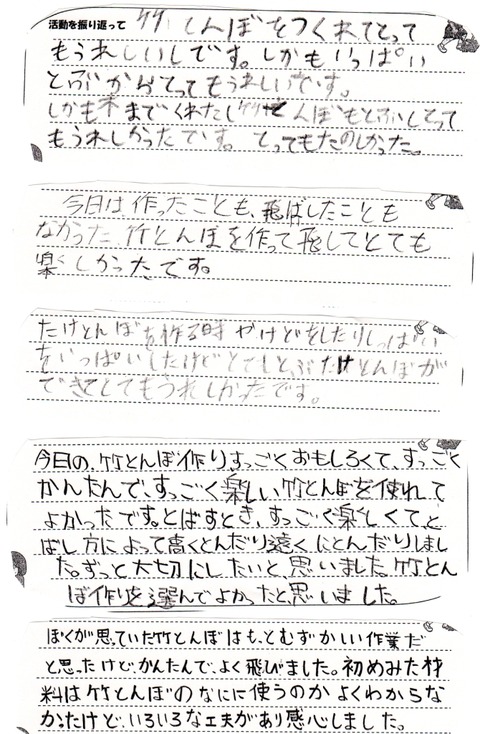 活動を振り返って 竹とんぼをつくれてとって
もうれしいしです。しかもいっぱい
とぶからとってもうれしいです。
しかも本までくれたし竹とんぼもとぶしとって
もうれしかったです。とってもたのしかった。
今日は、作ったことも、飛ばしたことも
なかった竹とんぼを作って飛してとても
楽しかったです。
たけとんぼを作る時やけどをしたりしっぱい
をいっぱいしたけどとてもとぶたけとんぼが
できてとてもうれしかったです。
今日の、竹とんぼ作り、すっごくおもしろくて、すっごく
かんたんで、すっごく楽しい竹とんぼを使れて
よかったです。とばすとき、すっごく楽しくて、と
ばし方によって高くとんだり遠くにとんだりしまし
た。ずっと大切にしたいと、思いました。竹とん
ぼ作りを選んでよかったと、思いました。
ぼくが思っていた竹とんぼはもっとむずかしい作業だ
と思ったけど、かんたんで、よく飛びました。初めみた材
料は竹とんぼのなにに使うのかよくわからな
かったけど、いろいろな工夫があり感心しました。